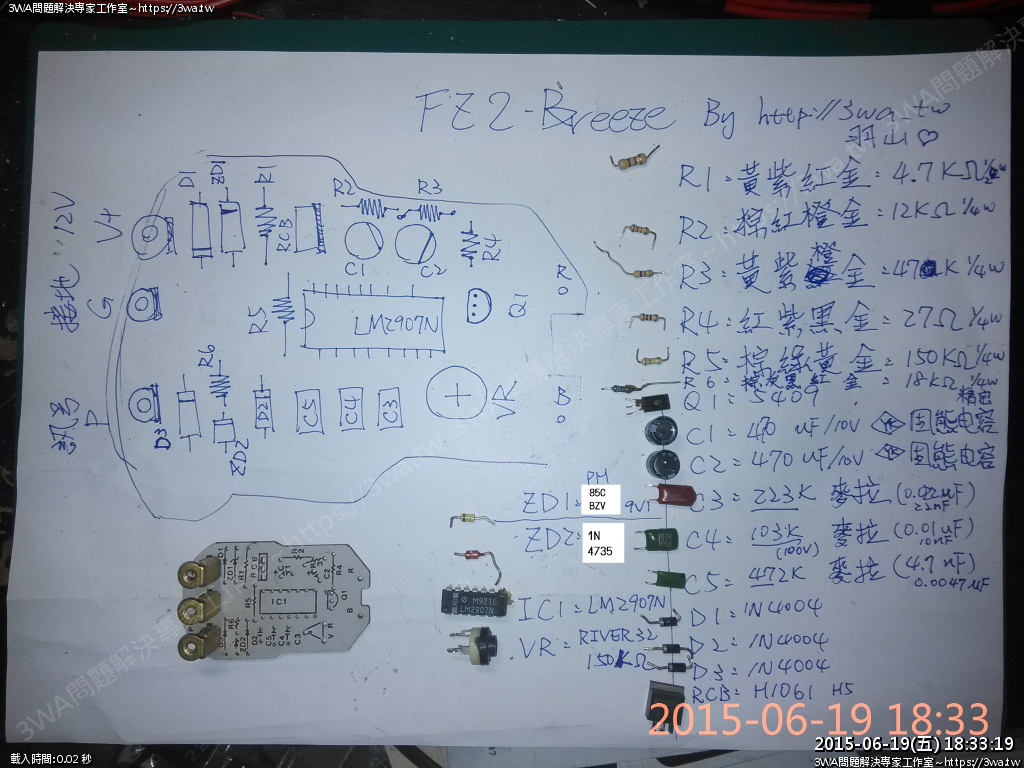 3WA問題解決專家工作室~https://3wa.tw
FZ2-Breeze By http://3wa.tw
羽山♡
R1=黃紫紅金=4.7KΩ¼w
R2=棕紅橙金=12KΩ¼w
R3=黃紫橙金=47K¼w
R4=紅紫黑金=27Ω¼w
R5=棕綠黃金=150KΩ¼w
R6=棕灰黑紅金=18KΩ¼w
精密
Q1=5409
C1=470uF/10V 固態电容
C2=470uF/10V 固態电容
C3=223K 麥拉(0.022uF)
22nF
C4=103K 麥拉(0.01uF)
(100V) 10nF
C5=472K 麥拉(4.7nF)
0.0047uF
D1=1N4004
D2=1N4004
D3=1N4004
RCB=H1061 H5
PH
ZD1=85C
BZV
9V1
ZD2=1N
4735
IC1=LM2907N
VR=RIVER32
150KΩ
M921E
LM2907N
12V
V+
接地
G
訊号
P
D1
ZD1
R1
RCB
R2
R3
C1
C2
R4
R5
LM2907N
Q1
R
R6
D3
ZD2
D2
C5
C4
C3
VR
B
D1
ZD1
R1
RCB
R2
C2
R4
R
R5
IC1
Q1
B
R6
ZD2
D2
C5
C4
C3
VR
2015-06-19 18:33
2015-06-19(五) 18:33:19
載入時間:0.02 秒
3WA問題解決專家工作室~https://3wa.tw